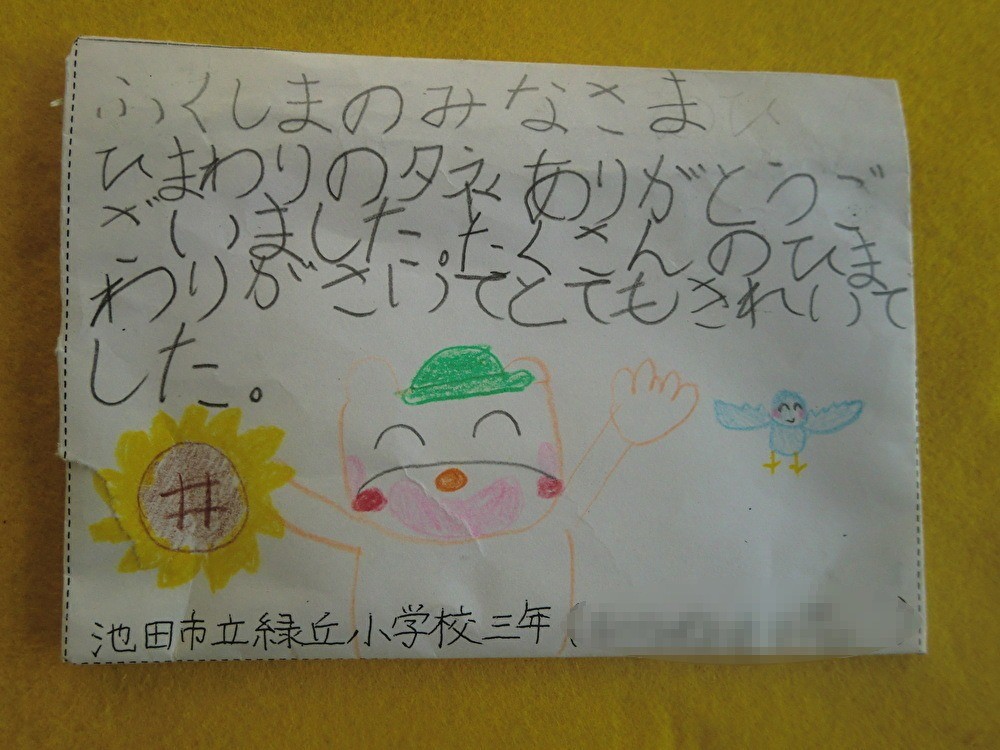 ふくしまのみなさま
ひまわりのタネありがとうご
ざいました。たくさんのひま
わりがさいてとてもきれいで
した。
池田市立緑丘小学校三年